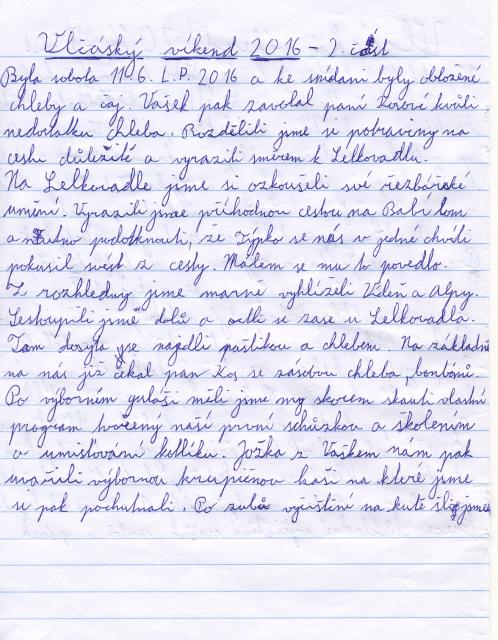 Vlčácký víkend 2016 – 2. část
Byla sobota 11.6. L.P. 2016 a ke snídani byly obložené
chleby a čaj. Vašek pak zavolal paní Kosové kvůli
nedostatku chleba. Rozdělili jsme se potraviny na
cestu důležité a vyrazili směrem k Lelkovadlu.
Na Lelkovadle jsme si ozkoušeli své řezbářské
umění. Vyrazili jsme příhodnou cestou na Babí lom
a nutno podotknouti, že Týpko se nás v jedné chvíli
pokusil svést z cesty. Málem se mu to povedlo.
Z rozhledny jsme marně vyhlíželi Vídeň a Alpy.
Sestoupili jsme dolů a octli se zase u Lelkovadla.
Tam dosyta jsme najedli paštikou a chlebem. Na základně
na nás již čekal pan Kos se zásobou chleba, bonbonů.
Po výborném guláši měli jsme my skorem skauti vlastní
program tvořený naší první schůzkou a školením
o umisťování kotlíku. Jožka z Vaškem nám pak
uvařili výbornou krupičnou kaši na které jsme
si pak pochutnali. Po zubů vyčištění na kutě šli jsme